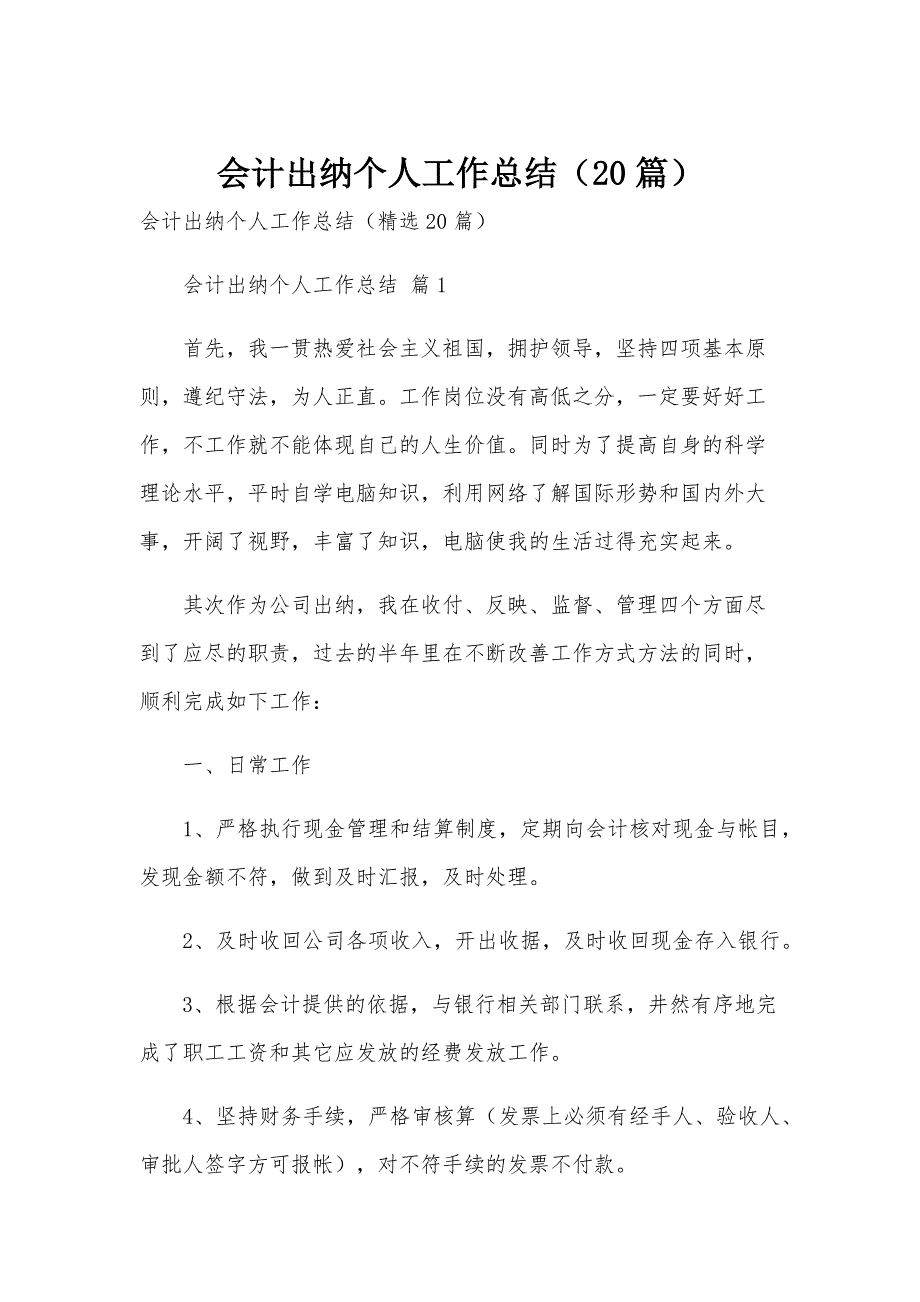 会计出纳个人工作总结（20篇）
会计出纳个人工作总结（精选20篇）
会计出纳个人工作总结 篇1
首先，我一贯热爱社会主义祖国，拥护领导，坚持四项基本原
则，遵纪守法，为人正直。工作岗位没有高低之分，一定要好好工
作，不工作就不能体现自己的人生价值。同时为了提高自身的科学
理论水平，平时自学电脑知识，利用网络了解国际形势和国内外大
事，开阔了视野，丰富了知识，电脑使我的生活过得充实起来。
其次作为公司出纳，我在收付、反映、监督、管理四个方面尽
到了应尽的职责，过去的半年里在不断改善工作方式方法的同时，
顺利完成如下工作：
一、日常工作
1、严格执行现金管理和结算制度，定期向会计核对现金与帐目，
发现金额不符，做到及时汇报，及时处理。
2、及时收回公司各项收入，开出收据，及时收回现金存入银行。
3、根据会计提供的依据，与银行相关部门联系，井然有序地完
成了职工工资和其它应发放的经费发放工作。
4、坚持财务手续，严格审核算（发票上必须有经手人、验收人、
审批人签字方可报帐），对不符手续的发票不付款。